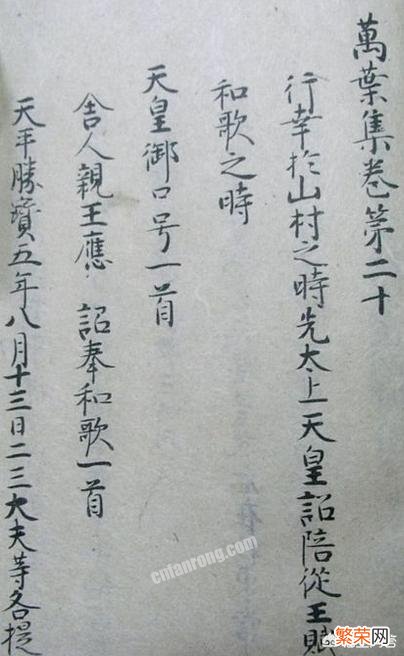 萬葉集卷第二十
行幸於山村之時先太上天皇詔陪從王賦
和歌之時
天皇御口号一首
舎人親王應 詔奉和歌一首
天平勝寶五年八月十三日二三大夫等各提
cnfanrong.com
繁荣网